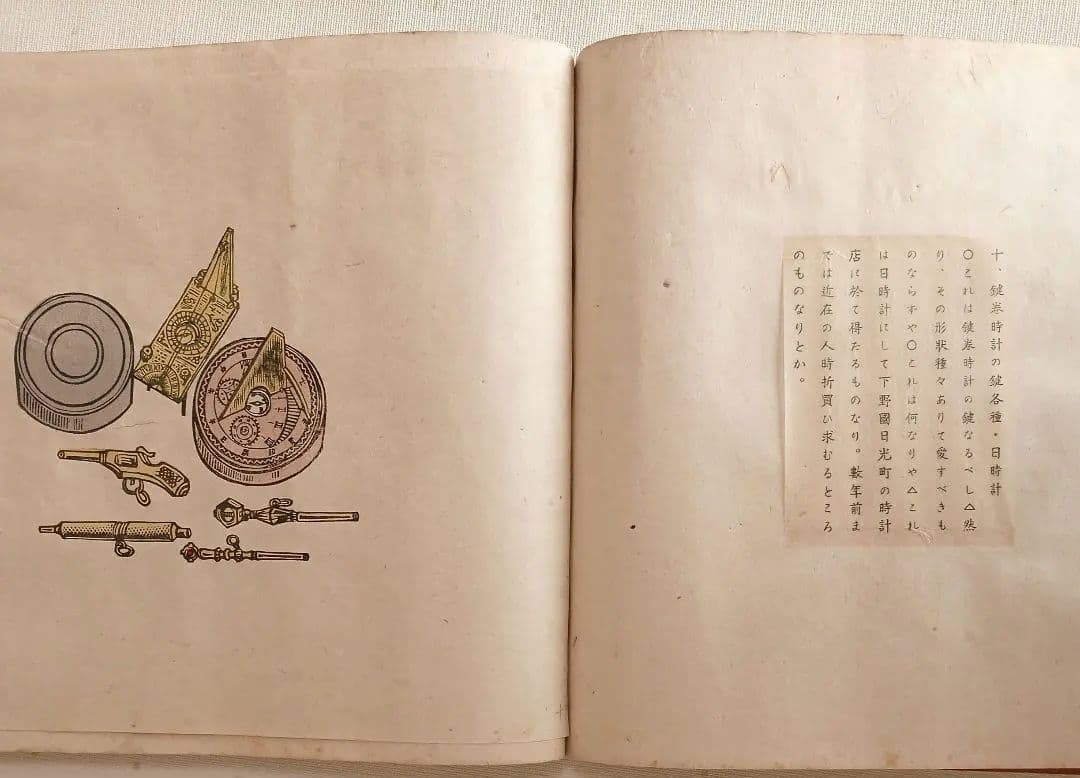 十、鍵巻時計の鍵各種・日時計
〇これは鍵巻時計の鍵なるべし△然
り、その形状種々ありて愛すべきも
のならずや〇これは何なりや△これ
は日時計にして下野國日光町の時計
店に於て得たるものなり。數年前ま
では近在の人時折買ひ求むるところ
のものなりとか。